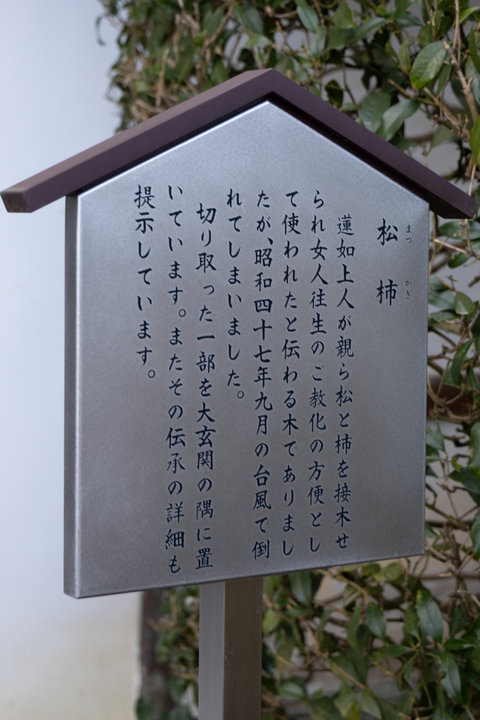 松柿
まつかき
蓮如上人が親ら松と柿を接木せ
られ女人往生のご教化の方便とし
て使われたと伝わる木でありまし
たが、昭和四十七年九月の台風で倒
れてしまいました。
切り取った一部を大玄関の隅に置
いています。またその伝承の詳細も
提示しています。